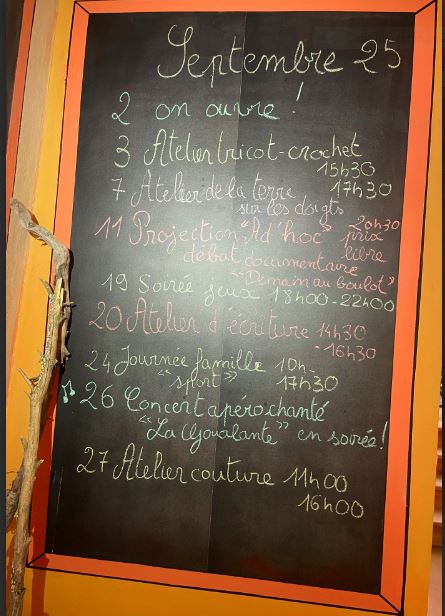 Septembre 25
2 on ouvre !
3 Atelier tricot-crochet
15h30
17h30
7 Atelier de la terre
sur les doigts
11 Projection "Ad'hoc" 20h30
prix
libre
débat documentaire
"Demain au boulot"
19 Soirée jeux 18h00-22h00
20 Atelier d'écriture 14h30
-16h30
24 Journée famille 10h-
"sport" 17h30
♪ 26 Concert apéro chanté
"La" en soirée!
27 Atelier couture 11h00
16h00